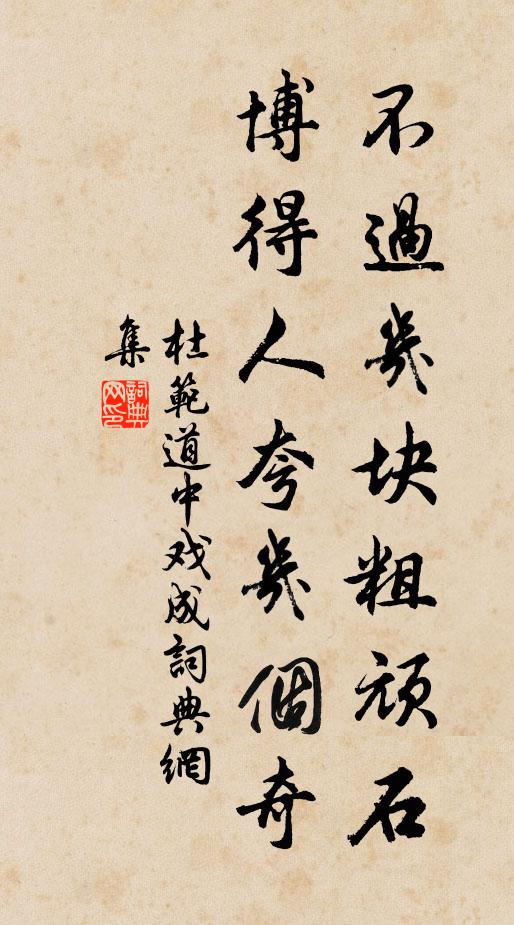 不過幾块粗頑石
博得人夸幾個奇
杜範道中戏成詞典網
集
詞典网印